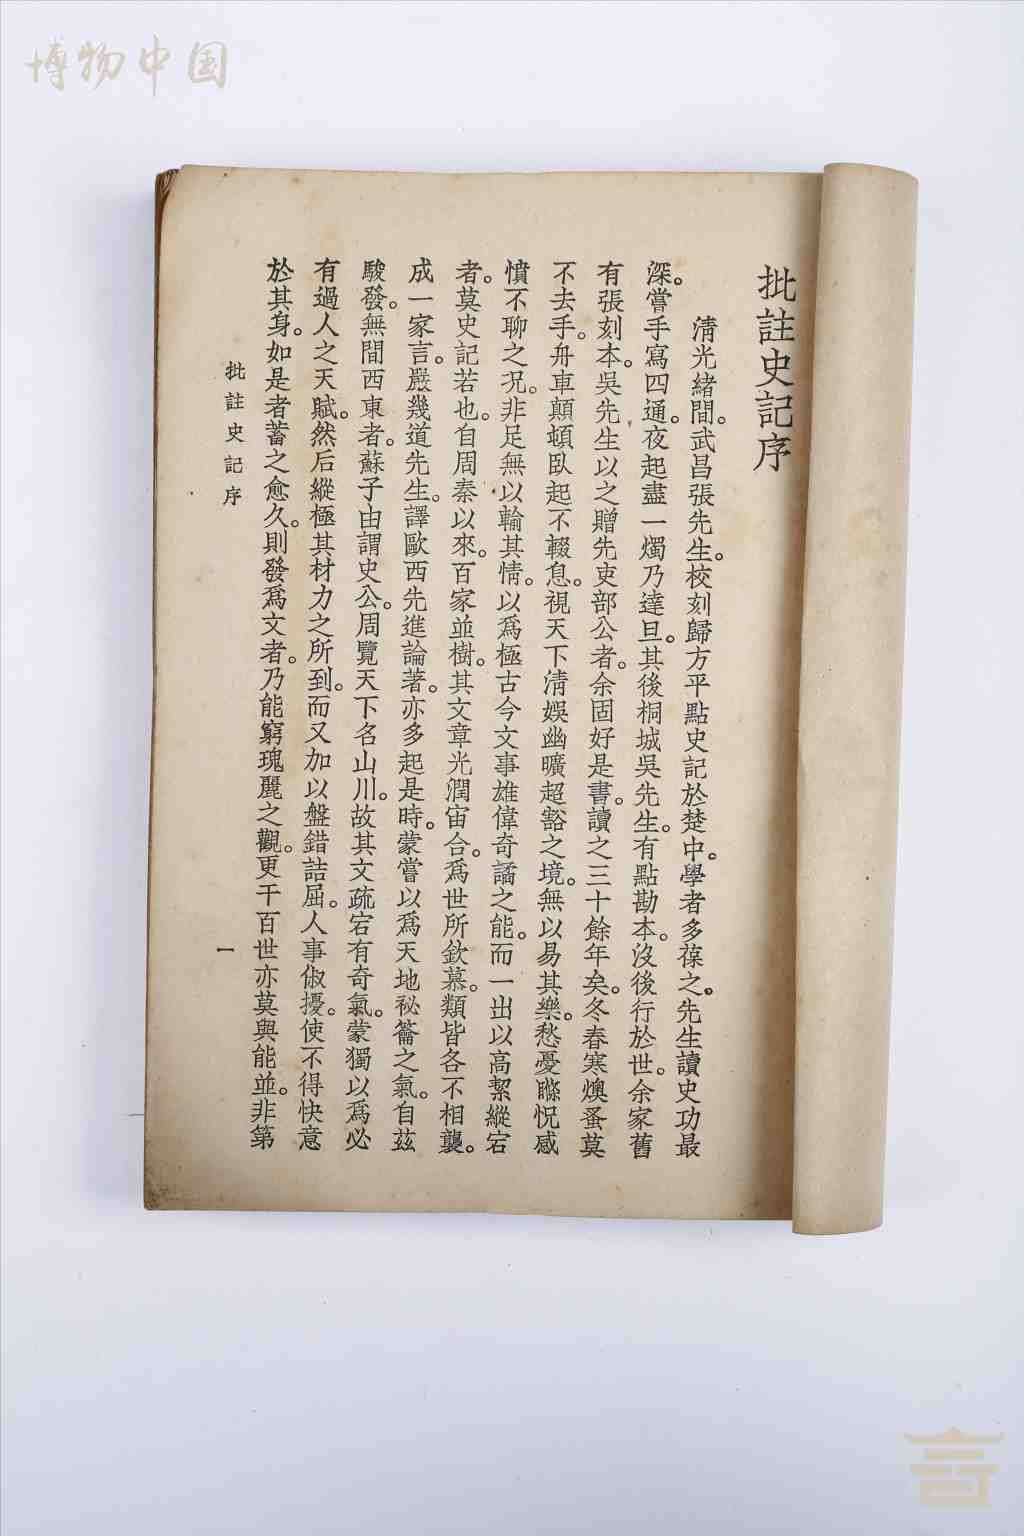 博物中国
批註史記序
清光緒間。武昌張先生。校刻歸方平點史記於楚中。學者多葆之。先生讀史功最
深。嘗手寫四通。夜起盡一燭乃達旦。其後桐城吳先生。有點勘本。沒後行於世。余家舊
有張刻本。吳先生以之贈先吏部公者。余固好是書。讀之三十餘年矣。冬春寒燠蚤莫
不去手。舟車顛頓臥起不輟息。視天下清娛幽曠超豁之境。無以易其樂。愁憂騷怳感
憤不聊之況。非足無以輸其情。以爲極古今文事雄偉奇譎之能。而一出以高絜縱宕
者。莫史記若也。自周秦以來。百家並樹。其文章光潤宙合。爲世所欽慕。類皆各不相襲。
成一家言。嚴幾道先生。譯歐西先進論著。亦多起是時。蒙嘗以爲天地祕籥之氣。自茲
駿發。無間西東者。蘇子由謂史公。周覽天下名山川。故其文疏宕有奇氣。蒙獨以爲必
有過人之天賦。然后縱極其材力之所到。而又加以盤錯詰屈。人事俶擾。使不得快意
於其身。如是者蓄之愈久。則發爲文者。乃能窮瑰麗之觀。更千百世亦莫與能並。非第
批註史記序
一